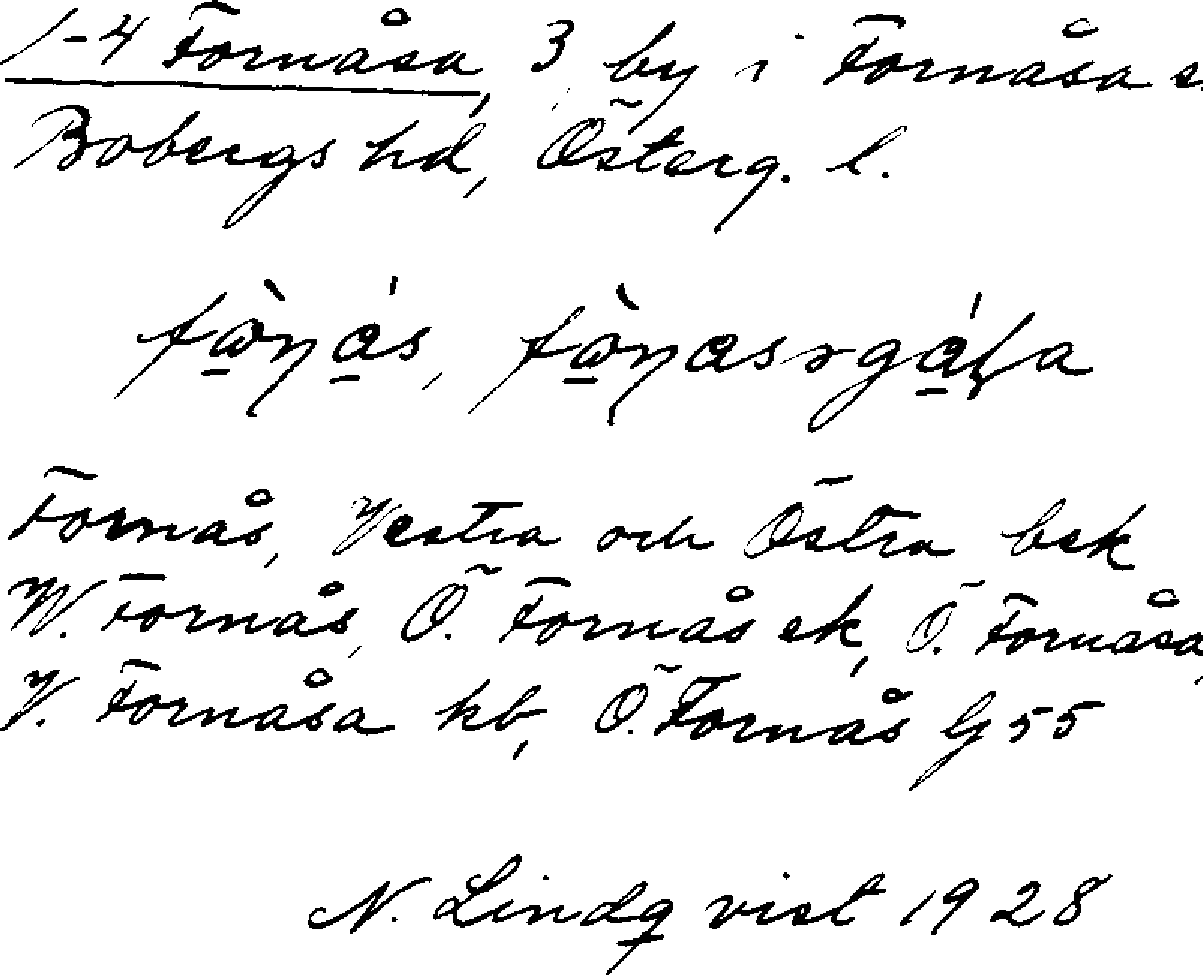 1-4 Fornåsa, 3 by i Fornåsa s.
Bobergs hd, Österg. l.
Fornås, Vestra och Östra bsk
W. Fornås, Ö. Fornås ek, Ö. Fornåsa,
V. Fornåsa kb, Ö. Fornås G 55
N. Lindqvist 1928